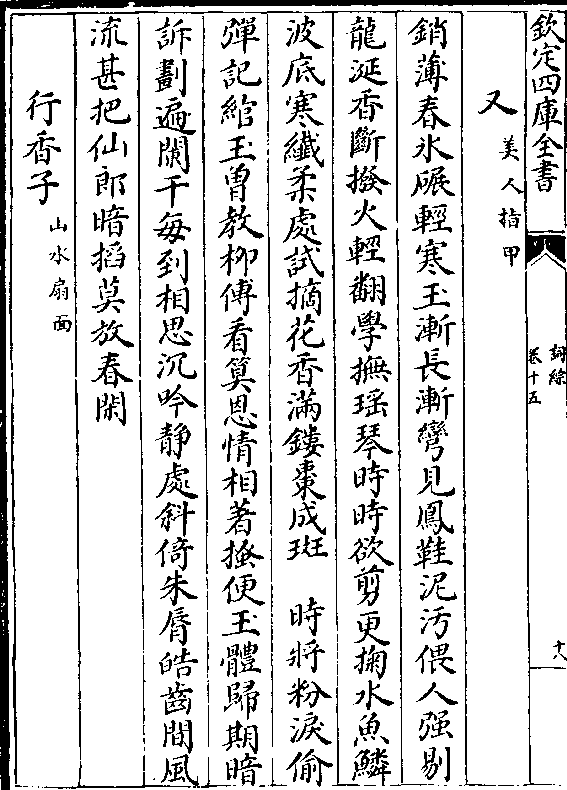 欽定四庫全書
詞綜
卷十五
十八
又
美人指甲
銷薄春氷碾輕寒玉漸長漸彎見鳳鞋泥汚偎人强剔
龍涎香斷撥火輕翻學撫瑶琴時時欲剪更掬水魚鱗
波底寒纎柔處試摘花香滿鏤棗成斑　時將粉淚偷
彈記綰玉曽教柳傅看算恩情相著搔便玉體歸期暗
訴劃遍闌干每到相思沉吟靜處斜倚朱脣皓齒間風
流甚把仙郎暗掐莫放春閑
行香子
山水扇面